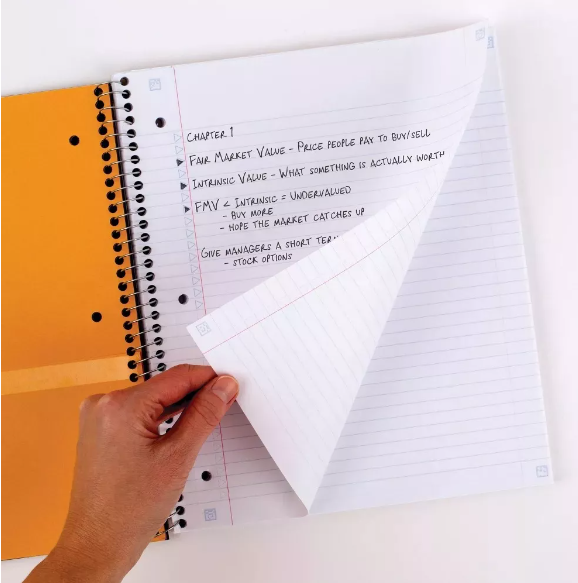 CHAPTER 1
FAIR MARKET VALUE - PRICE PEOPLE PAY TO BUY/SELL
INTRINSIC VALUE - WHAT SOMETHING IS ACTUALLY WORTH
FMV < INTRINSIC = UNDERVALUED
- BUY MORE
- HOPE THE MARKET CATCHES UP
GIVE MANAGERS A SHORT
- STOCK OPTIONS